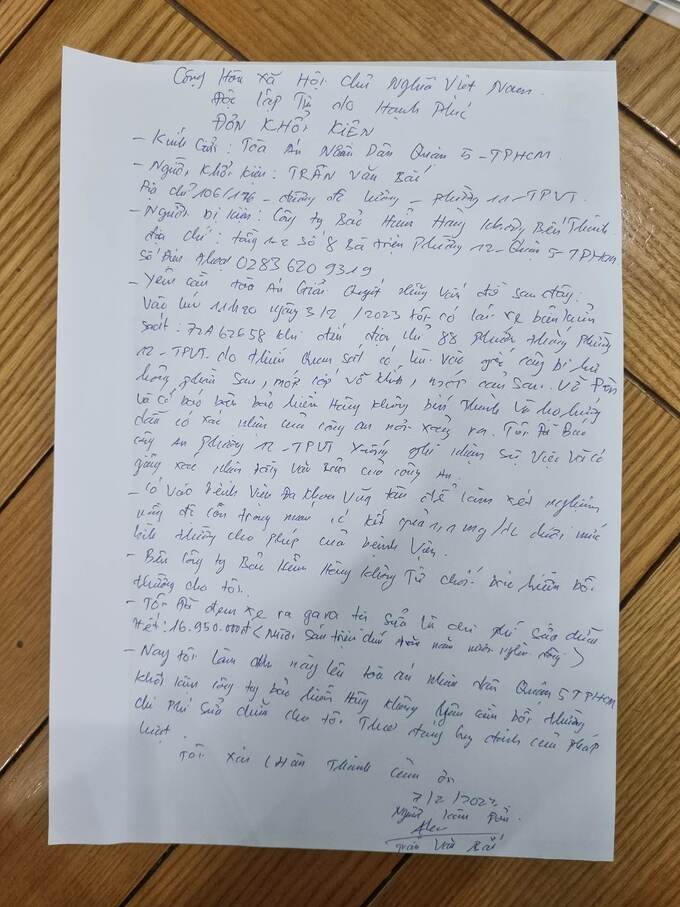 Cộng Hòa xã Hội chủ Nghĩa Việt Nam
Độc lập Tự do Hạnh Phúc
ĐƠN KHỞI KIỆN
- Kính Gửi: Tòa Án Nhân Dân Quận 5 - TPHCM
- Người khởi kiện: TRẦN VĂN BÁI
Địa chỉ 106/176 - đường đê - phường 11 - TPVT.
- Người bị kiện: Công ty Bảo Hiểm Hàng không Bến Thành
địa chỉ: tầng 1-2 số 8 Bà triệu Phường 12 - Quận 5 - TPHCM
số điện thoại 0283 620 9319
- Yêu cầu tòa Án Giải Quyết những vấn đề sau đây:
Vào lúc 11h20 ngày 3/2/2023 tôi có lái xe biển kiểm
soát: 72A 62658 khi đến địa chỉ 88 phường
12 - TPVT. do thiếu Quan sát có lùi vào gốc cây bị hư
hỏng phía sau, móp cốp vỡ kính, cản sau.
và có báo bên bảo hiểm Hàng không bến Thành và họ hướng
dẫn có xác nhận của công an nơi xảy ra. Tôi Đã Báo
công An phường 12 - TPVT xuống ghi nhận sự việc và có
giấy xác nhận bằng văn bản của công An.
- Có vào Bệnh Viện Đa khoa Vũng tàu để làm xét nghiệm
nồng độ cồn trong máu, có kết quả 1,1 mg/dL dưới mức
bình thường cho phép của bệnh viện.
- Bên công ty Bảo hiểm Hàng không Từ chối bảo hiểm bồi
thường cho tôi.
- Tôi đã đem xe ra gara tự sửa là chi phí sửa chữa
Hết: 16.950.000đ < Mười sáu triệu chín trăm năm mươi nghìn đồng >
- Nay tôi làm đơn này lên tòa án nhân dân Quận 5 TPHCM
khởi kiện công ty bảo hiểm Hàng không yêu cầu bồi thường
chi phí sửa chữa cho tôi. Theo đúng quy định của pháp
luật.
Tôi xin chân Thành cảm ơn
7/2/2023
Người làm đơn
Trần Văn Bái